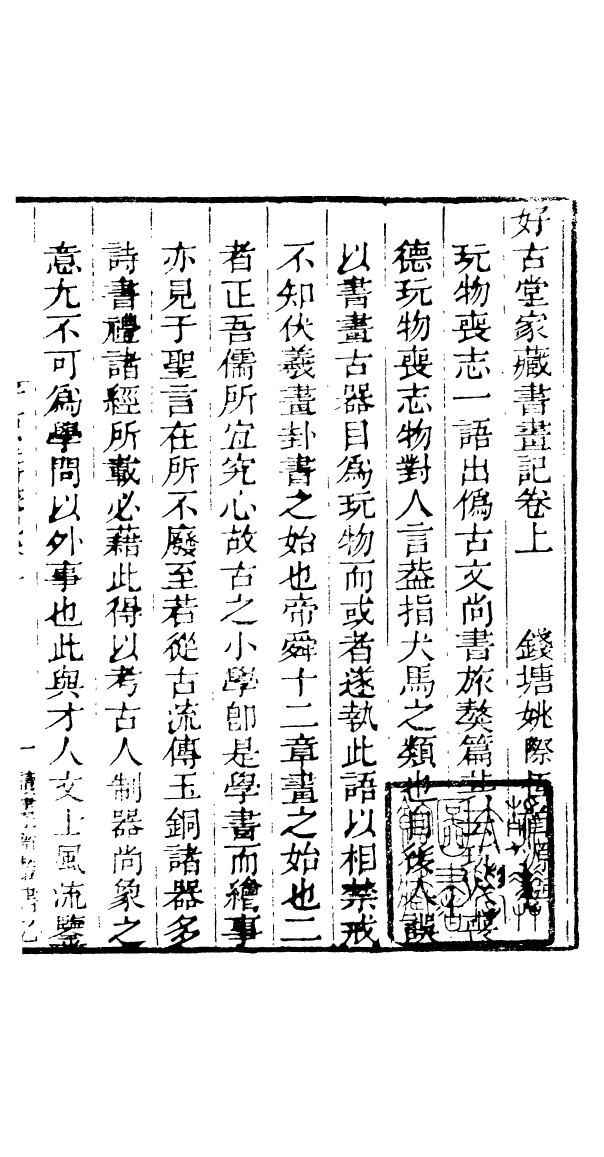 好古堂家藏書畫記卷上　錢塘姚際恆首源
玩物喪志一語出偽古文尚書旅獒篇其云玩人喪
德玩物喪志物對人言葢指犬馬之類也自後人誤
以書畫古器目為玩物而或者遂執此語以相禁戒
不知伏羲畫卦書之始也帝舜十二章畫之始也二
者正吾儒所宜究心故古之小學卽是學書而繪事
亦見于聖言在所不廢至若從古流傳玉銅諸器多
詩書禮諸經所載必藉此得以考古人制器尚象之
意尢不可為學問以外事也此與才人文士風流鑒
一